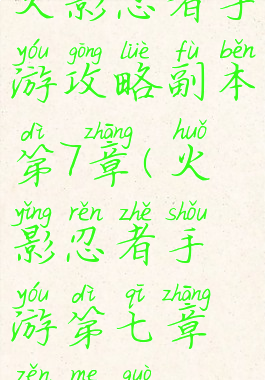 火影忍者手
yóu gōng lüè fù běn
游攻略副本
dì zhāng huǒ
第7章(火
yǐng rěn zhě shǒu
影忍者手
yóu dì qī zhāng
游第七章
zěn me guò